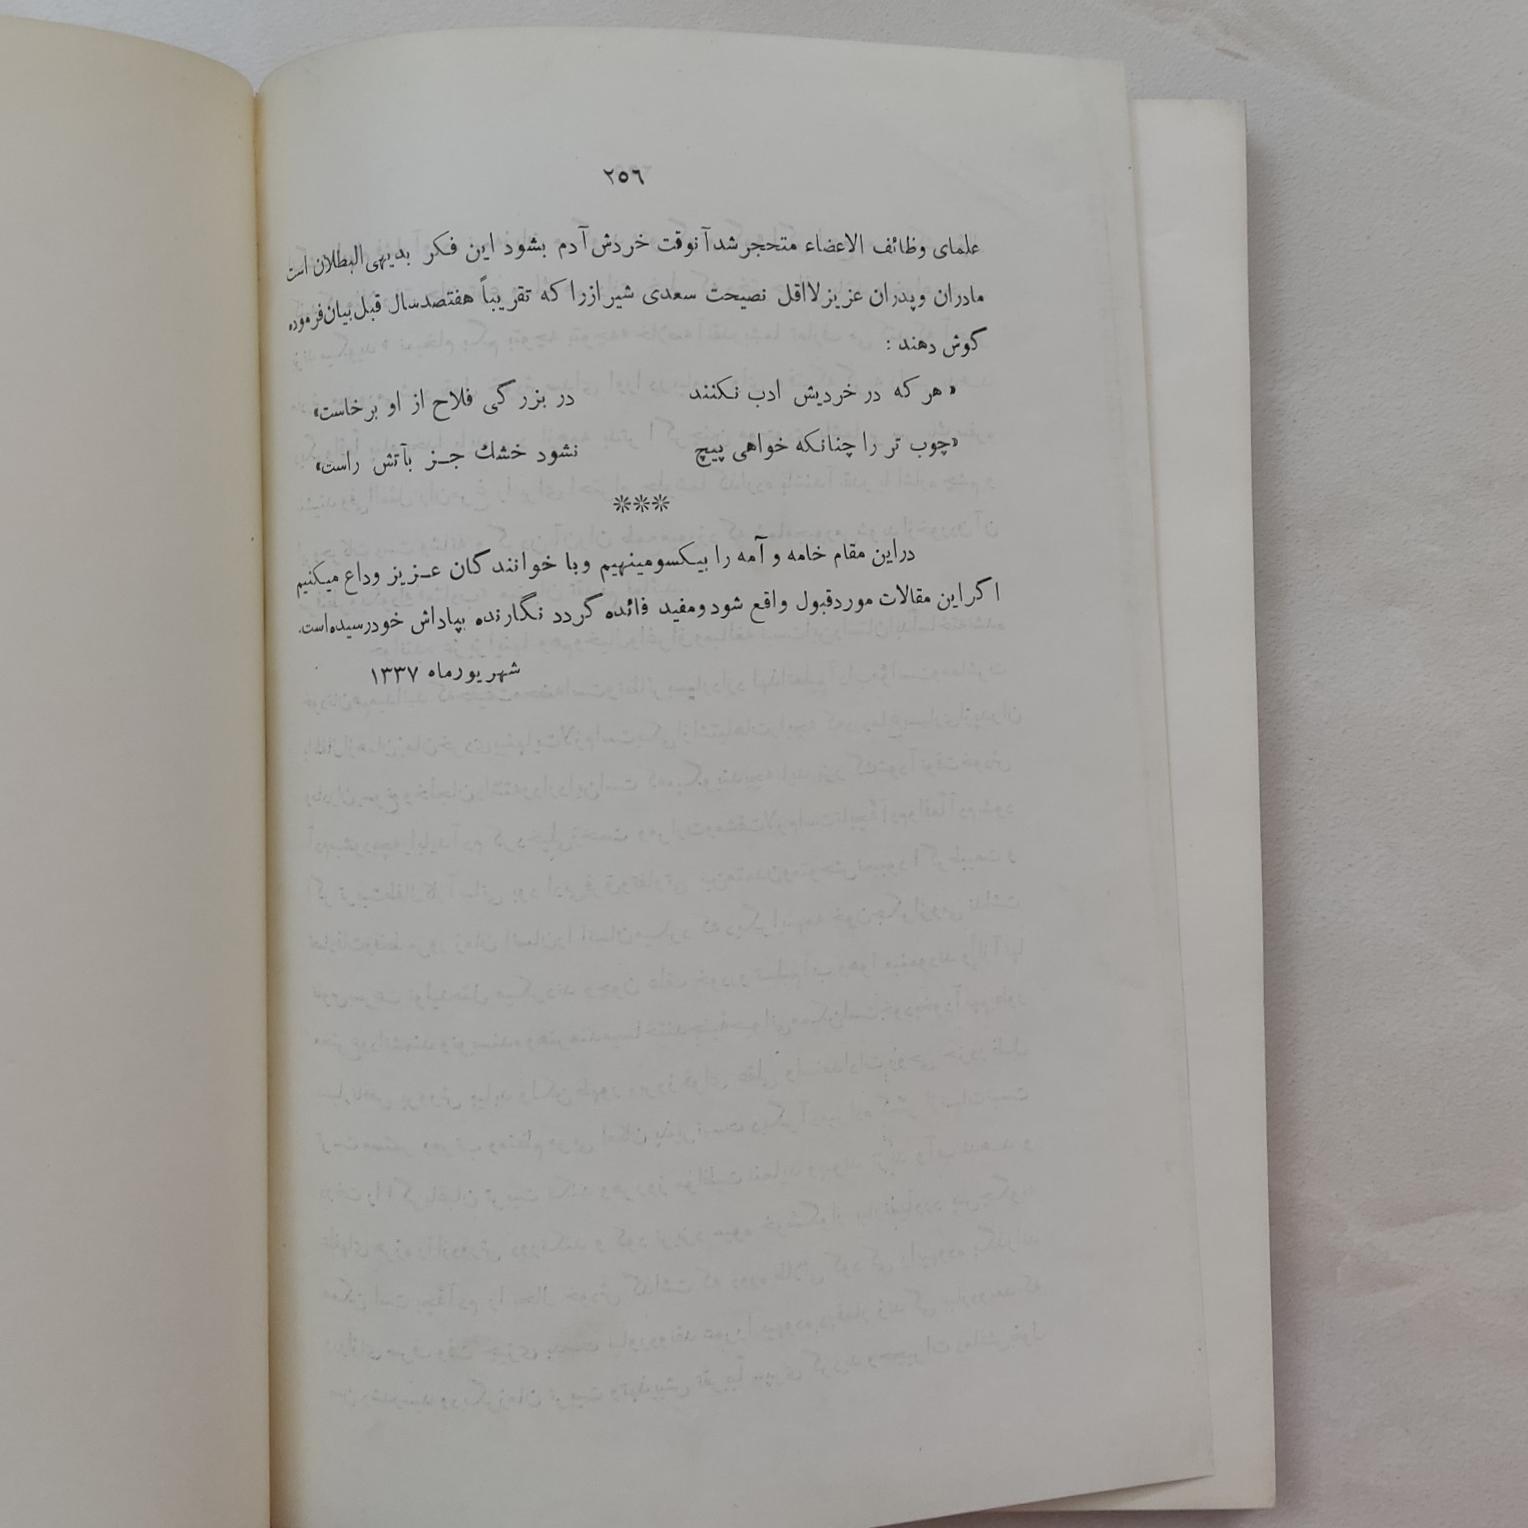 ٢٥٦
علمای وظائف الاعضاء متحجر شد آنوقت خردش آدم بشود این فکر بدیهی البطلان است
مادران و پدران عزیز لااقل نصیحت سعدی شیراز را که تقریباً هفتصد سال قبل بیان فرموده
گوش دهند :
« هر که در خردیش ادب نکنند در بزرگی فلاح از او برخاست»
«چوب تر را چنانکه خواهی پیچ نشود خشك جـز بآتش راست»
***
در این مقام خامه و آمه را بیکسو مینهیم و با خوانندگان عـزیز وداع میکنیم
اگر این مقالات مورد قبول واقع شود و مفید فائده گردد نگارنده بپاداش خود رسیده است.
شهریورماه ۱۳۳۷